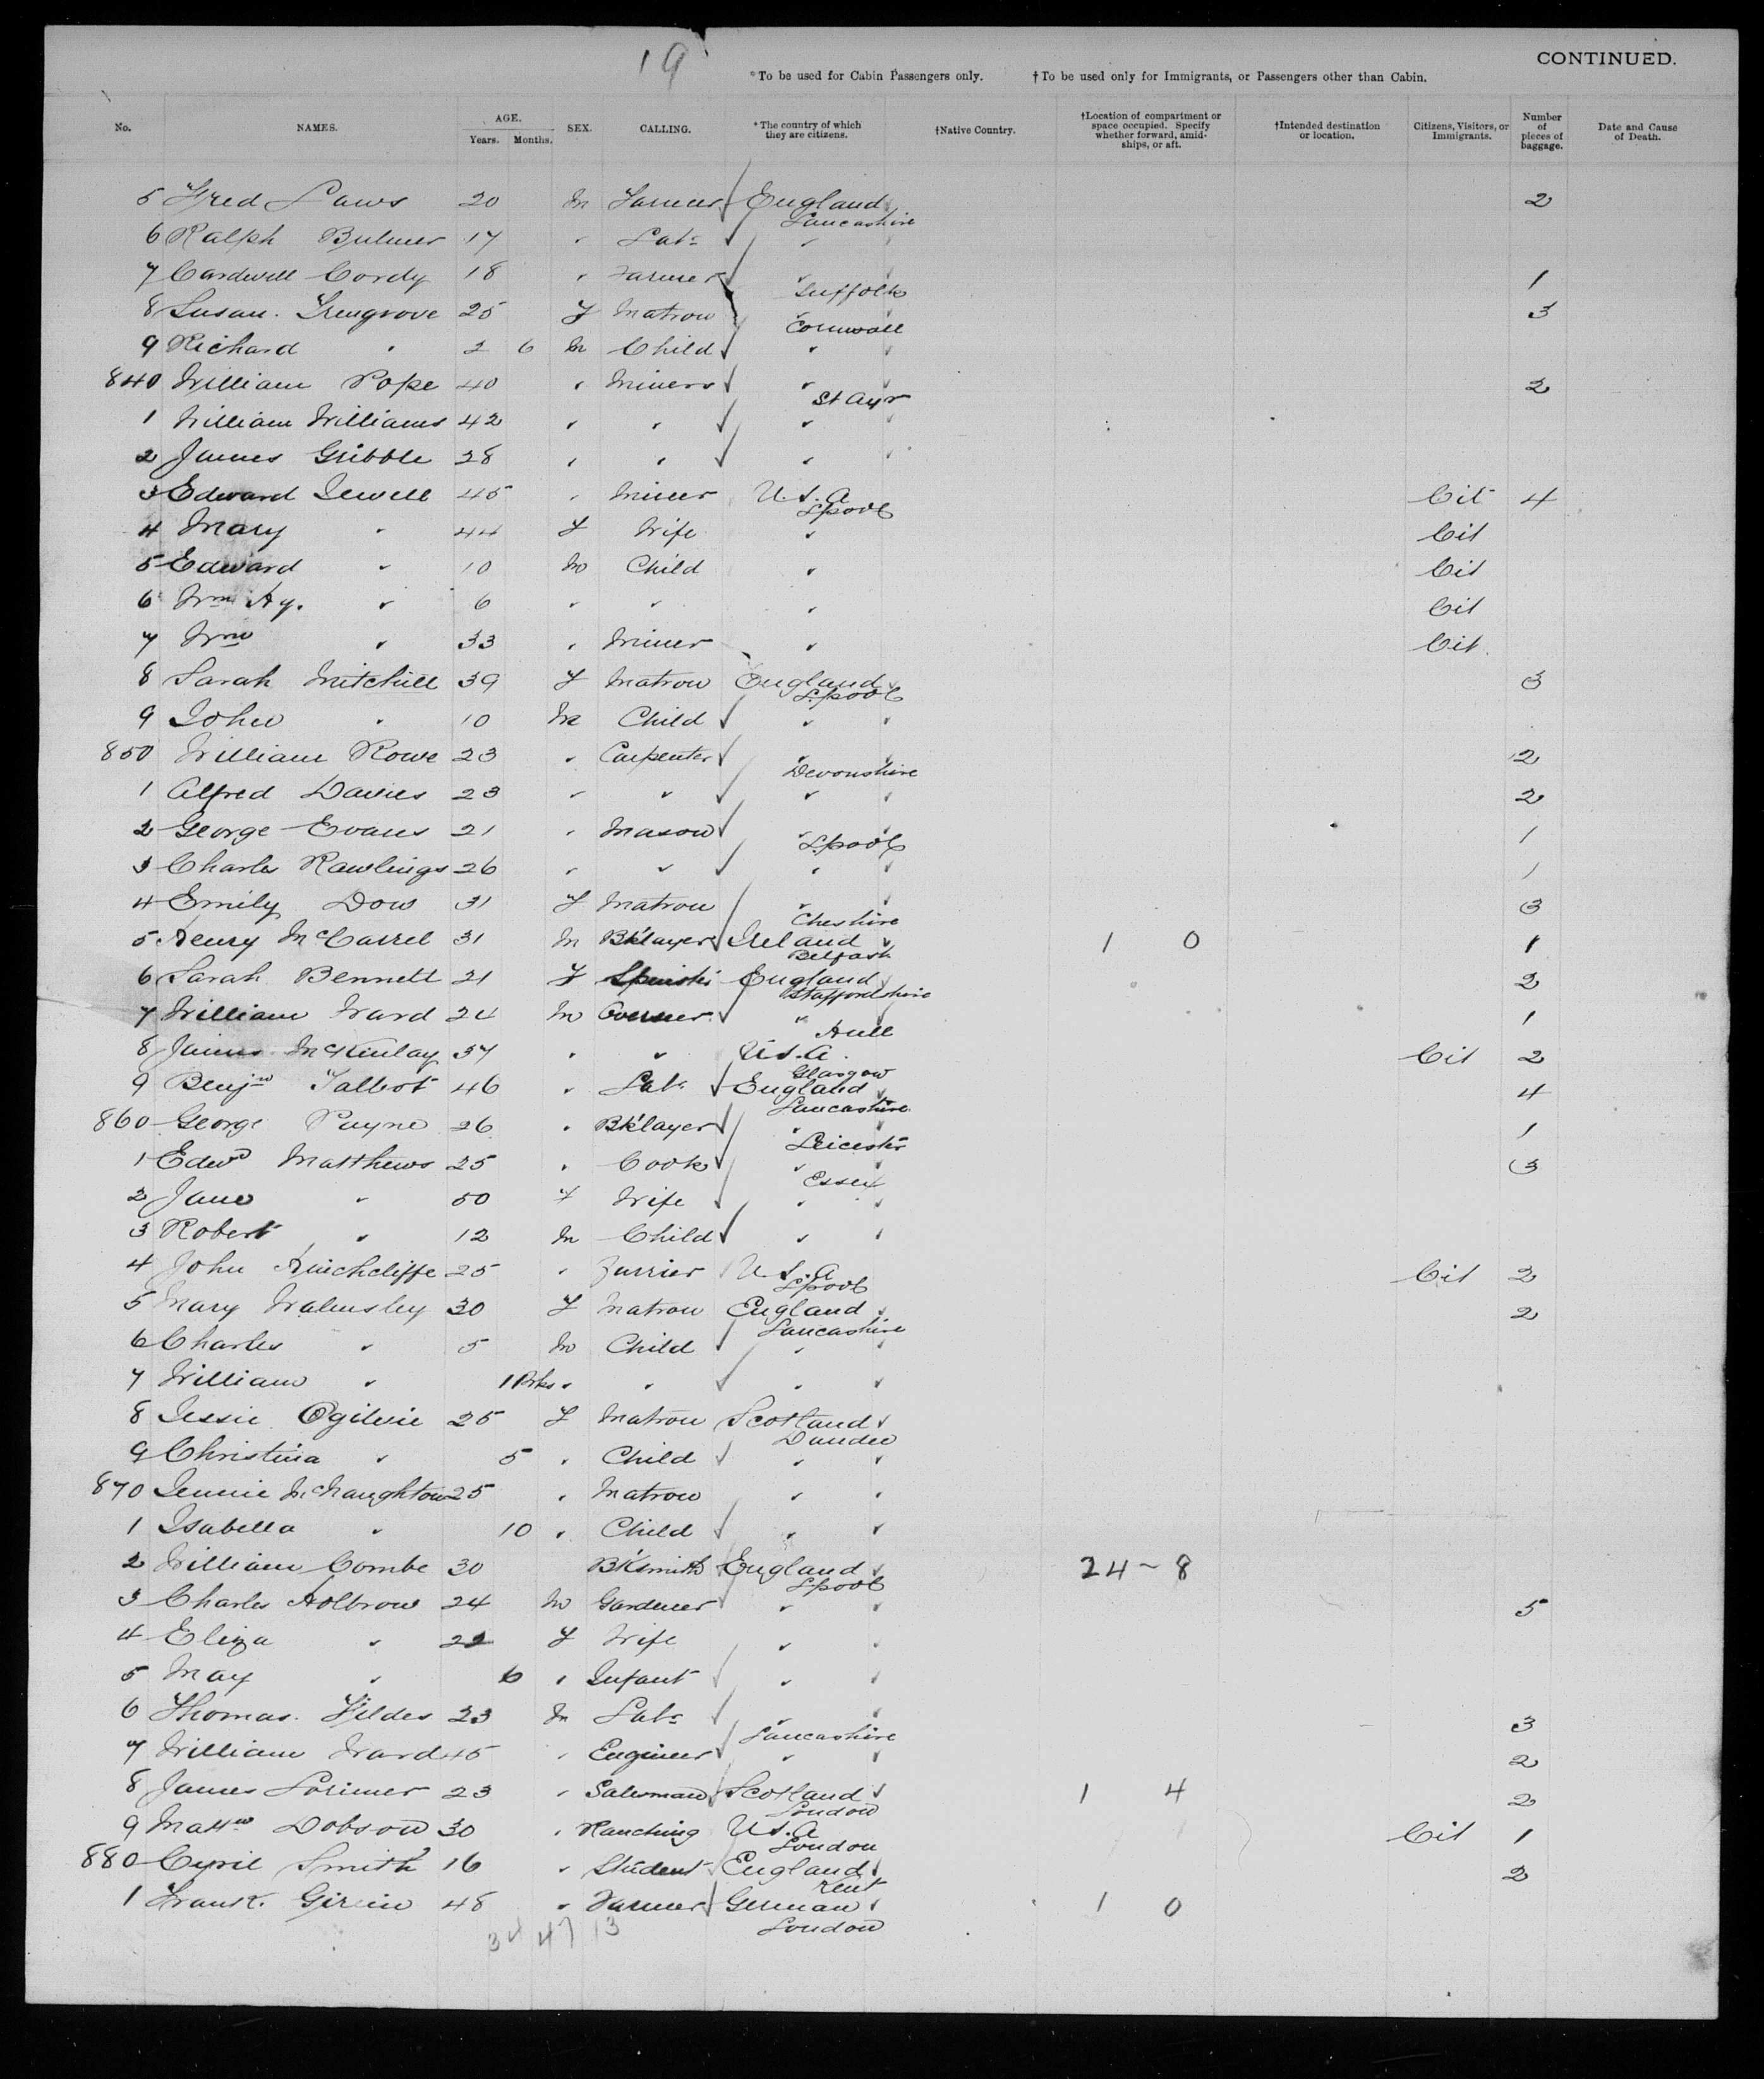 19
CONTINUED.
*To be used for Cabin Passengers only. †To be used only for Immigrants, or Passengers other than Cabin.
No. NAMES. AGE. Years. Months. SEX. CALLING. *The country of which they are citizens. †Native Country. †Location of compartment or space occupied. Specify whether forward, amidships, or aft. †Intended destination or location. Citizens, Visitors, or Immigrants. Number of pieces of baggage. Date and Cause of Death.
5 Fred Laws 20 M Farmer England 2
Lancashire
6 Ralph Bulmer 17 " Labr "
7 Cardwell Cordy 18 " Farmer " 1
Suffolk
8 Susan Trengrove 25 F Matron " 3
Cornwall
9 Richard " 2 6 M Child "
840 William Pope 40 " Miners " 2
St Ayr
1 William Williams 42 " " "
2 James Gribble 28 " " "
3 Edward Jewell 45 " Miner U.S.A Cit 4
Lpool
4 Mary " 44 F Wife " Cit
5 Edward " 10 M Child " Cit
6 Wm Hy. " 6 " " " Cit
7 Wm " 33 " Miner " Cit
8 Sarah Mitchell 39 F Matron England 3
Lpool
9 John " 10 M Child "
850 William Rowe 23 " Carpenter " 2
Devonshire
1 Alfred Davies 23 " " " 2
2 George Evans 21 " Mason " 1
Lpool
3 Charles Rawlings 26 " " " 1
4 Emily Dow 31 F Matron " 3
Cheshire
5 Henry McCarrel 31 M Bk'layer Ireland 1 0 1
Belfast
6 Sarah Bennett 21 F Spinstr England 2
Staffordshire
7 William Ward 24 M " 1
Hull
8 James McKinlay 37 " " U.S.A. Cit 2
Glasgow
9 Benjn Talbot 46 " Labr England 4
Lancashire
860 George Payne 26 " Bk'layer " 1
Leicester
1 Edwd Matthews 25 " Cook " 3
Essex
2 Jane " 50 F Wife "
3 Robert " 12 M Child "
4 John Hinchcliffe 25 " Furrier U.S.A Cit 2
Lpool
5 Mary Walmsley 30 F Matron England 2
Lancashire
6 Charles " 5 M Child "
7 William " " " "
8 Jessie Ogilvie 25 F Matron Scotland
Dundee
9 Christina " 5 " Child "
870 Jennie McNaughton 25 " Matron "
1 Isabella " 10 " Child "
2 William Combe 30 Bk'smith England 24-8
Lpool
3 Charles Holbrow 24 M Gardener " 5
4 Eliza " 22 F Wife "
5 May " 6 " Infant "
6 Thomas Fildes 23 M Labr " 3
Lancashire
7 William Ward 45 " Engineer " 2
8 James Lorimer 23 " Salesman Scotland 1 4 2
London
9 Mattw Dobson 30 " Ranching U.S.A Cit 1
London
880 Cyril Smith 16 " Student England 2
Kent
1 Frank 48 " Farmer German 1 0
London
34 47 13